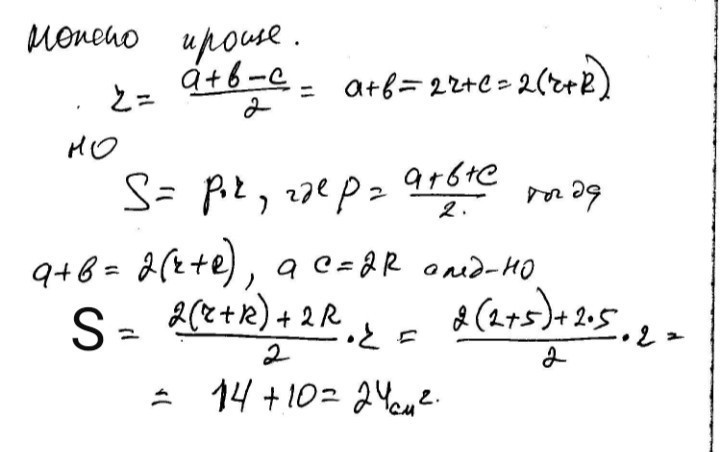 Можно проще.
r = (a+b−c)/2 = a+b = 2r+c = 2(r+R)
НО
S = p·r, где p = (a+b+c)/2. тогда
a+b = 2(r+R), а c=2R след-но
S = (2(r+R)+2R)/2 · r = (2(2+5)+2·5)/2 · 2 =
= 14+10 = 24 см².